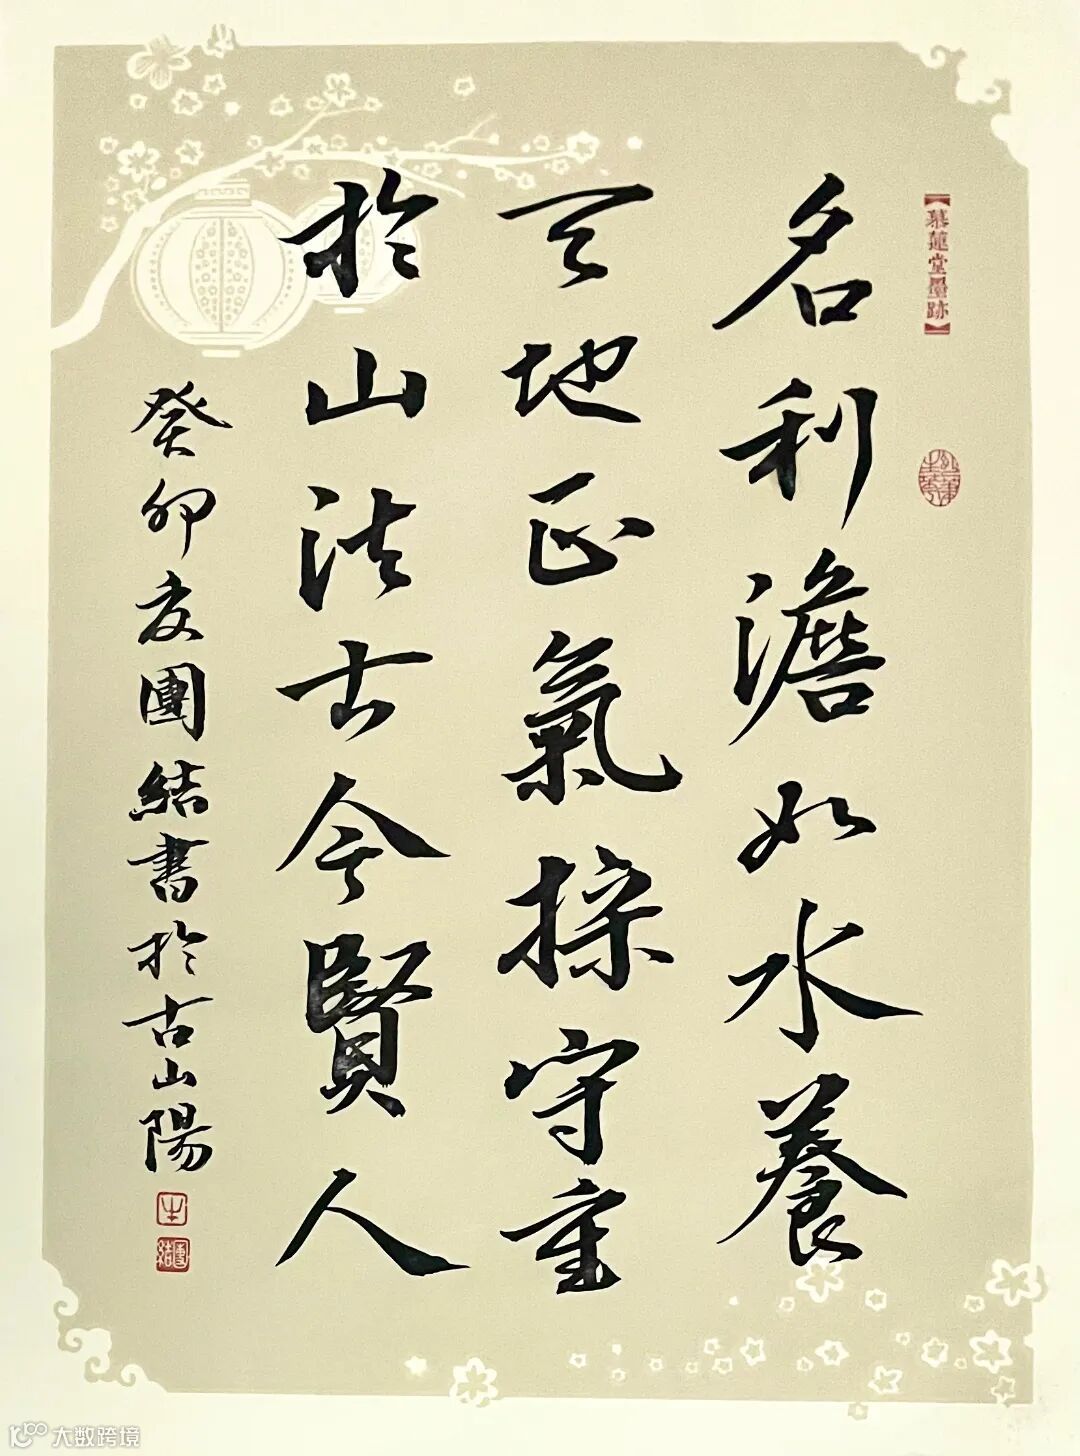 【慕蓮堂墨跡】
名利澹如水養
天地正氣操守重
於山法古今賢人
癸卯夏團結書於古山陽
團結
大数跨境